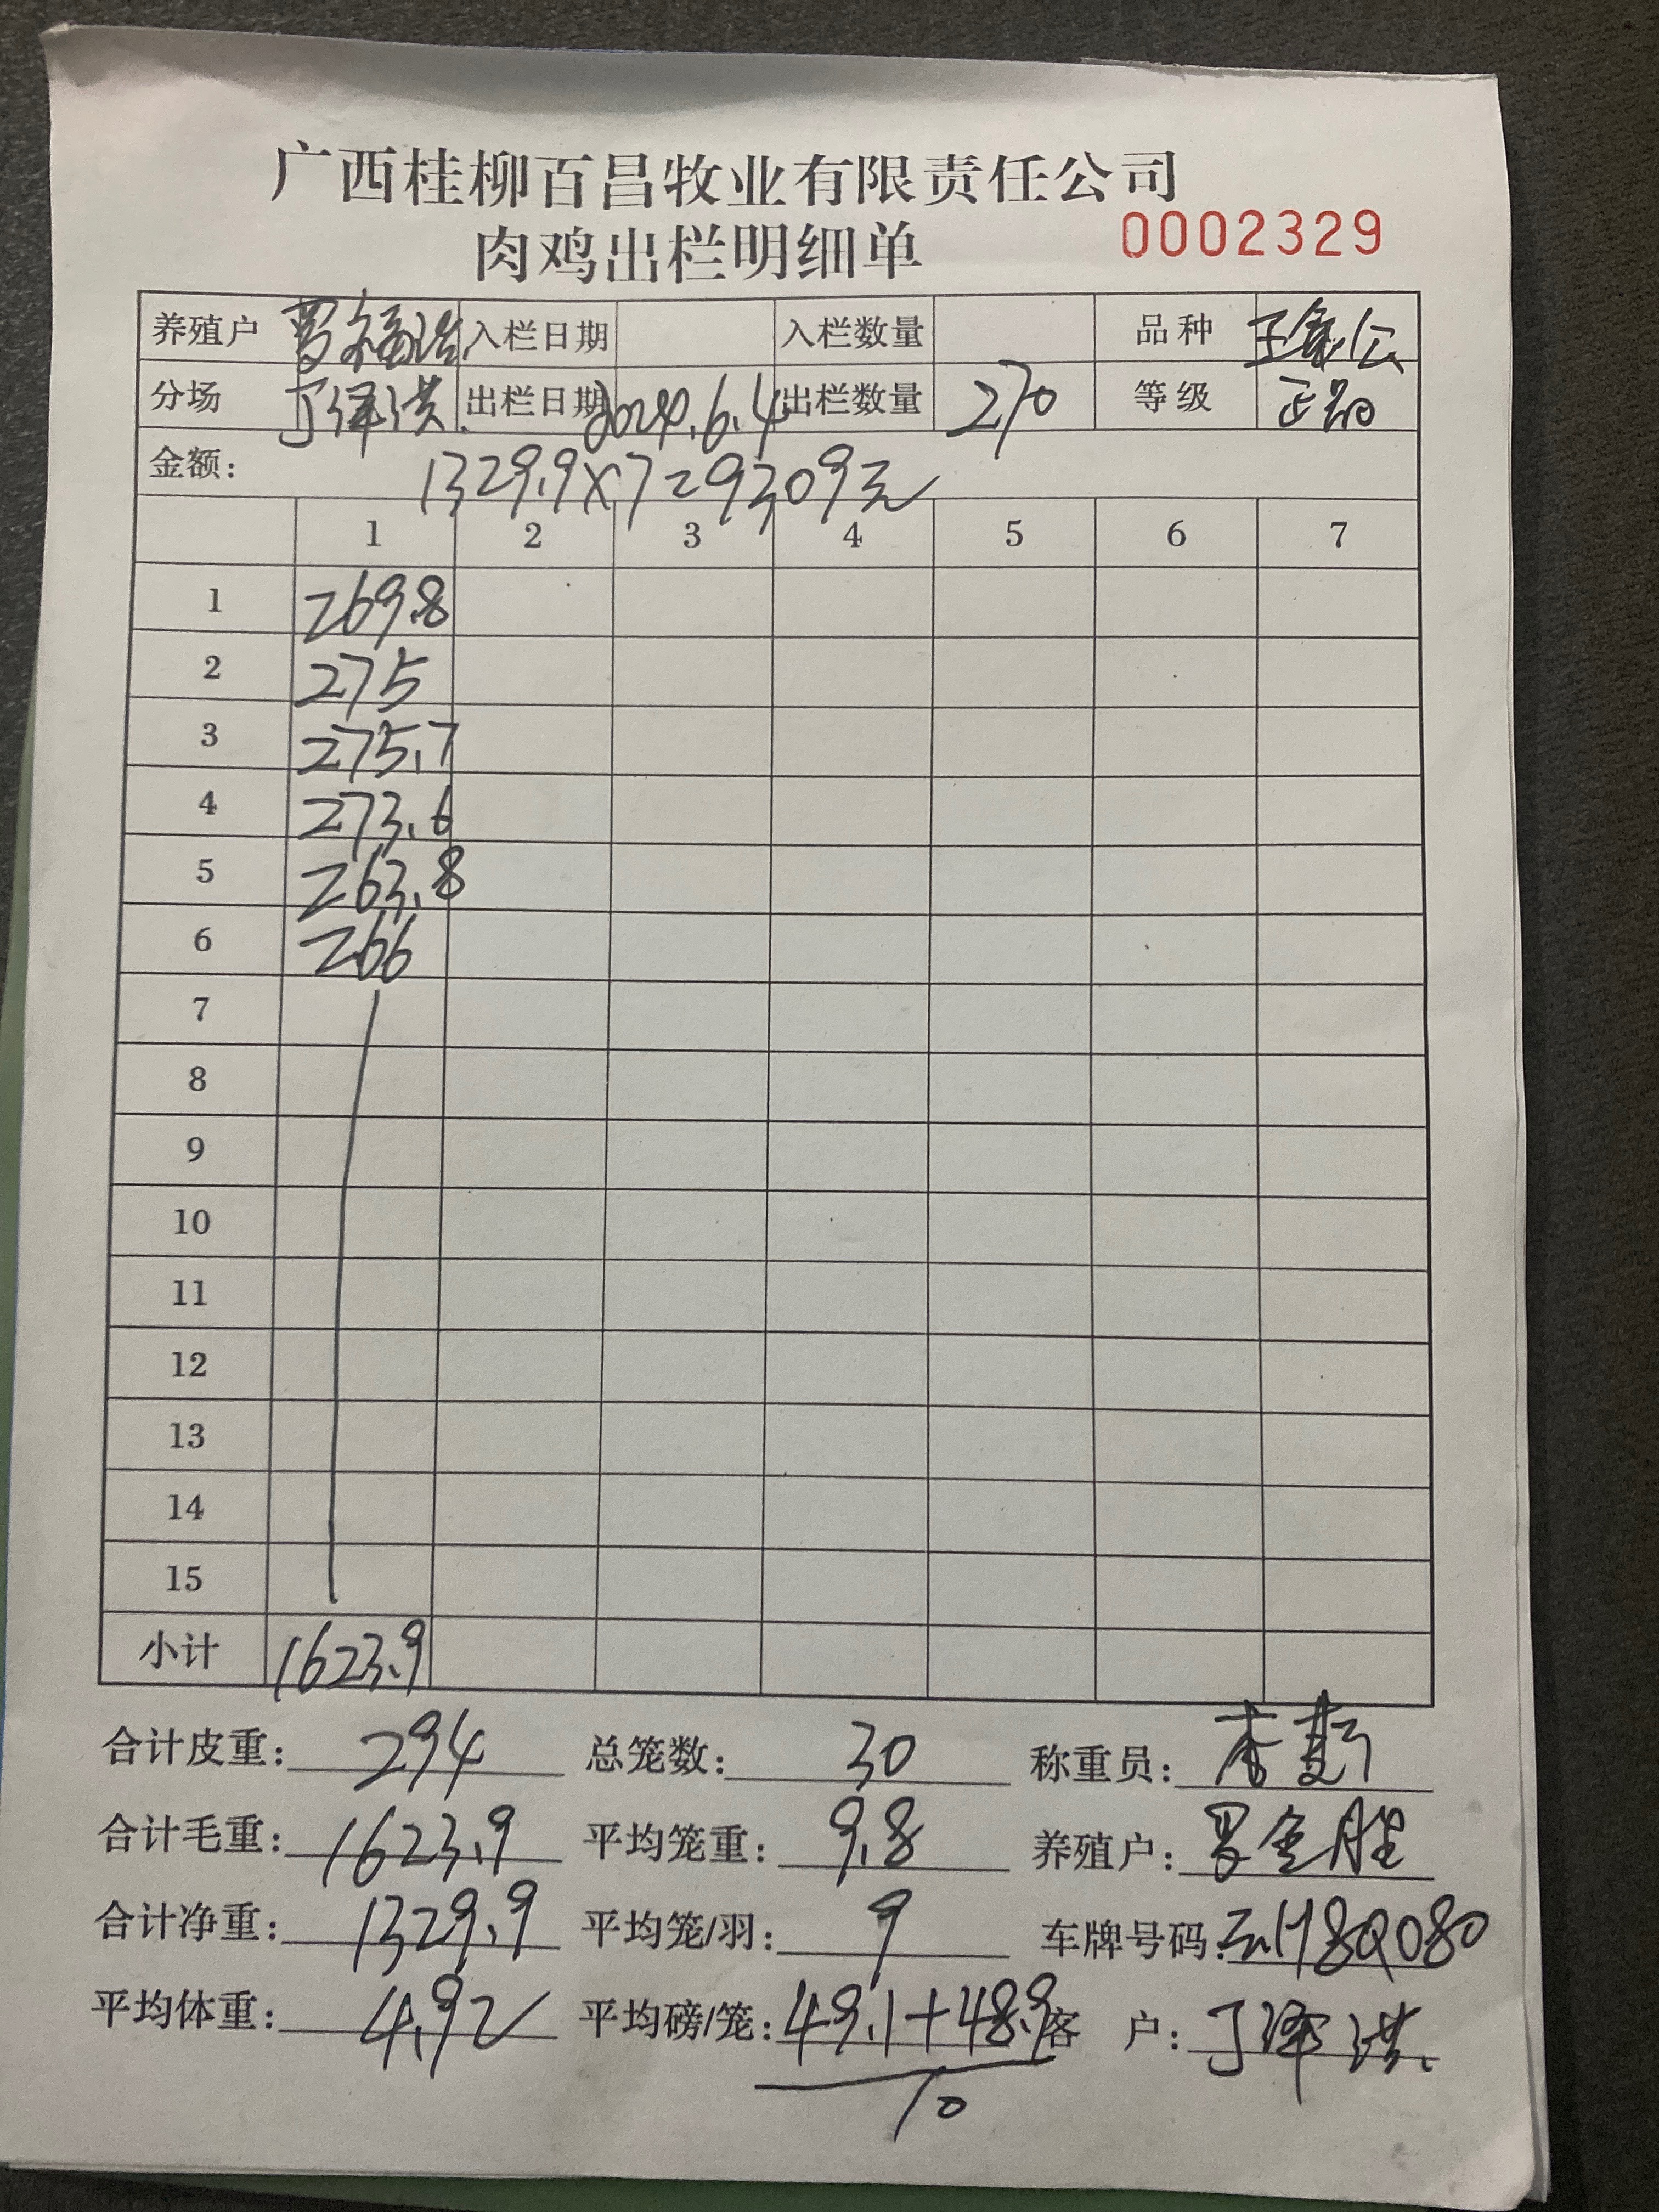 广西桂柳百昌牧业有限责任公司
肉鸡出栏明细单 0002329
养殖户 罗福浩 入栏日期 入栏数量 品种 公
分场 丁泽洪 出栏日期 2024.6.4 出栏数量 270 等级 正品
金额: 1329.9×7=9309元
1 2 3 4 5 6 7
1 269.8
2 275
3 275.7
4 273.6
5 263.8
6 266
7
8
9
10
11
12
13
14
15
小计 1623.9
合计皮重: 294 总笼数: 30 称重员: 李
合计毛重: 1623.9 平均笼重: 9.8 养殖户: 罗金胜
合计净重: 1329.9 平均笼/羽: 9 车牌号码: 云H8Q080
平均体重: 4.92 平均磅/笼: 49.1+48.9 客 户: 丁泽洪
10